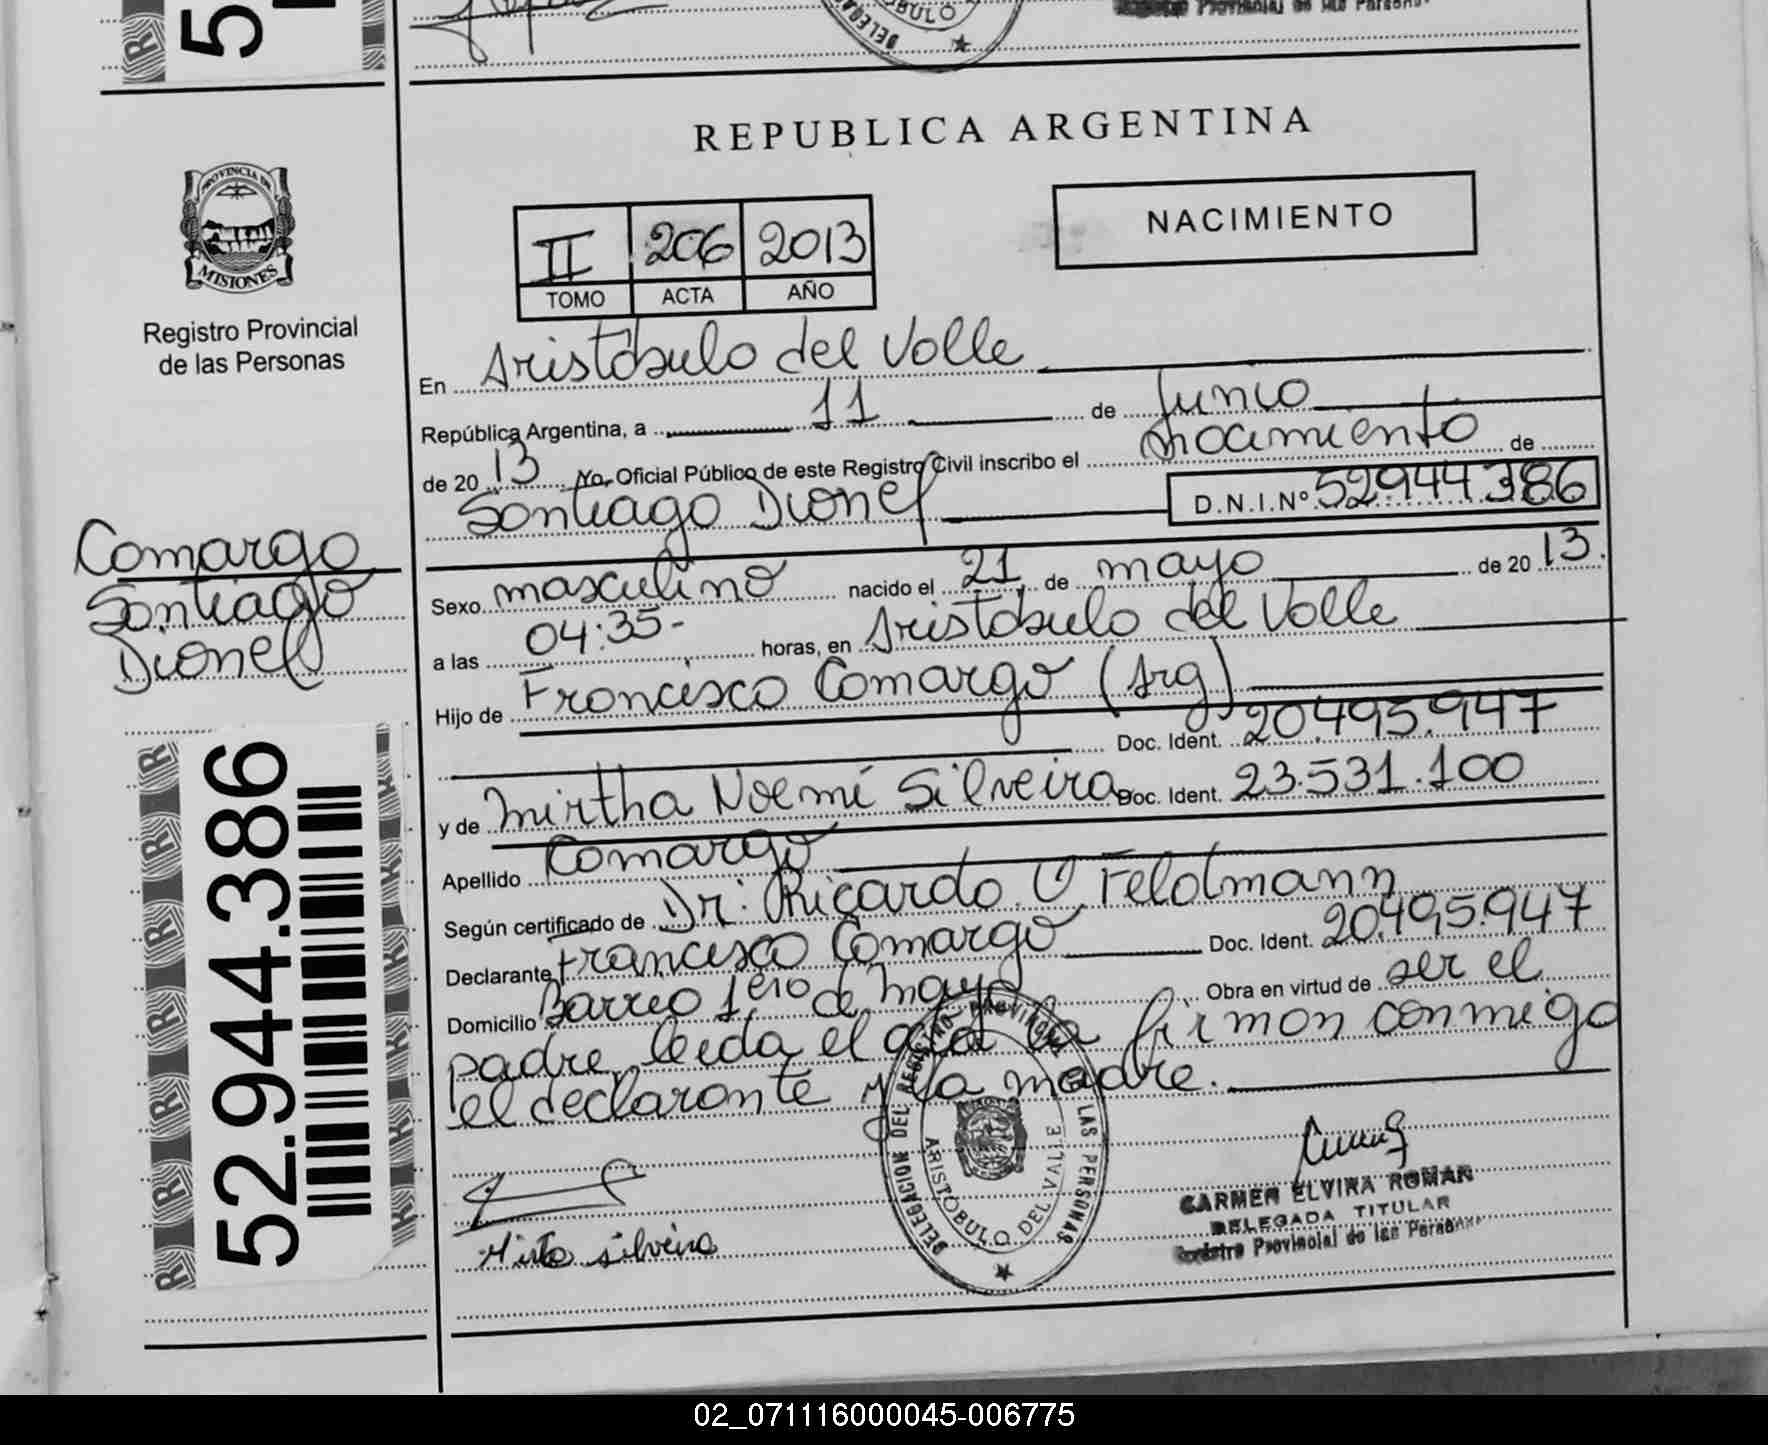 REPUBLICA ARGENTINA
PROVINCIA DE
MISIONES
Registro Provincial
de las Personas
II 206 2013
TOMO ACTA AÑO
NACIMIENTO
En Aristóbulo del Valle
República Argentina, a 11 de Junio
de 20 13. Yo, Oficial Público de este Registro Civil inscribo el nacimiento de
Santiago Dionel D.N.I.Nº 52.944.386
Camargo
Santiago
Dionel
Sexo masculino nacido el 21 de mayo de 20 13.
a las 04:35- horas, en Aristóbulo del Valle
Hijo de Francisco Camargo (Arg)
Doc. Ident. 20.495.947
y de Mirtha Noemí Silveira Doc. Ident. 23.531.100
Apellido Camargo
Según certificado de Dr. Ricardo O Feldmann
Declarante Francisco Camargo Doc. Ident. 20.495.947
Domicilio Barrio 1ero de Mayo Obra en virtud de ser el
padre, leida el acta la firman conmigo
el declarante y la madre.
52.944.386
DELEGACION DEL REGISTRO PROVINCIAL DE LAS PERSONAS
ARISTOBULO DEL VALLE
Mirta silveira
CARMEN ELVIRA ROMAN
DELEGADA TITULAR
Registro Provincial de las Personas
02_071116000045-006775